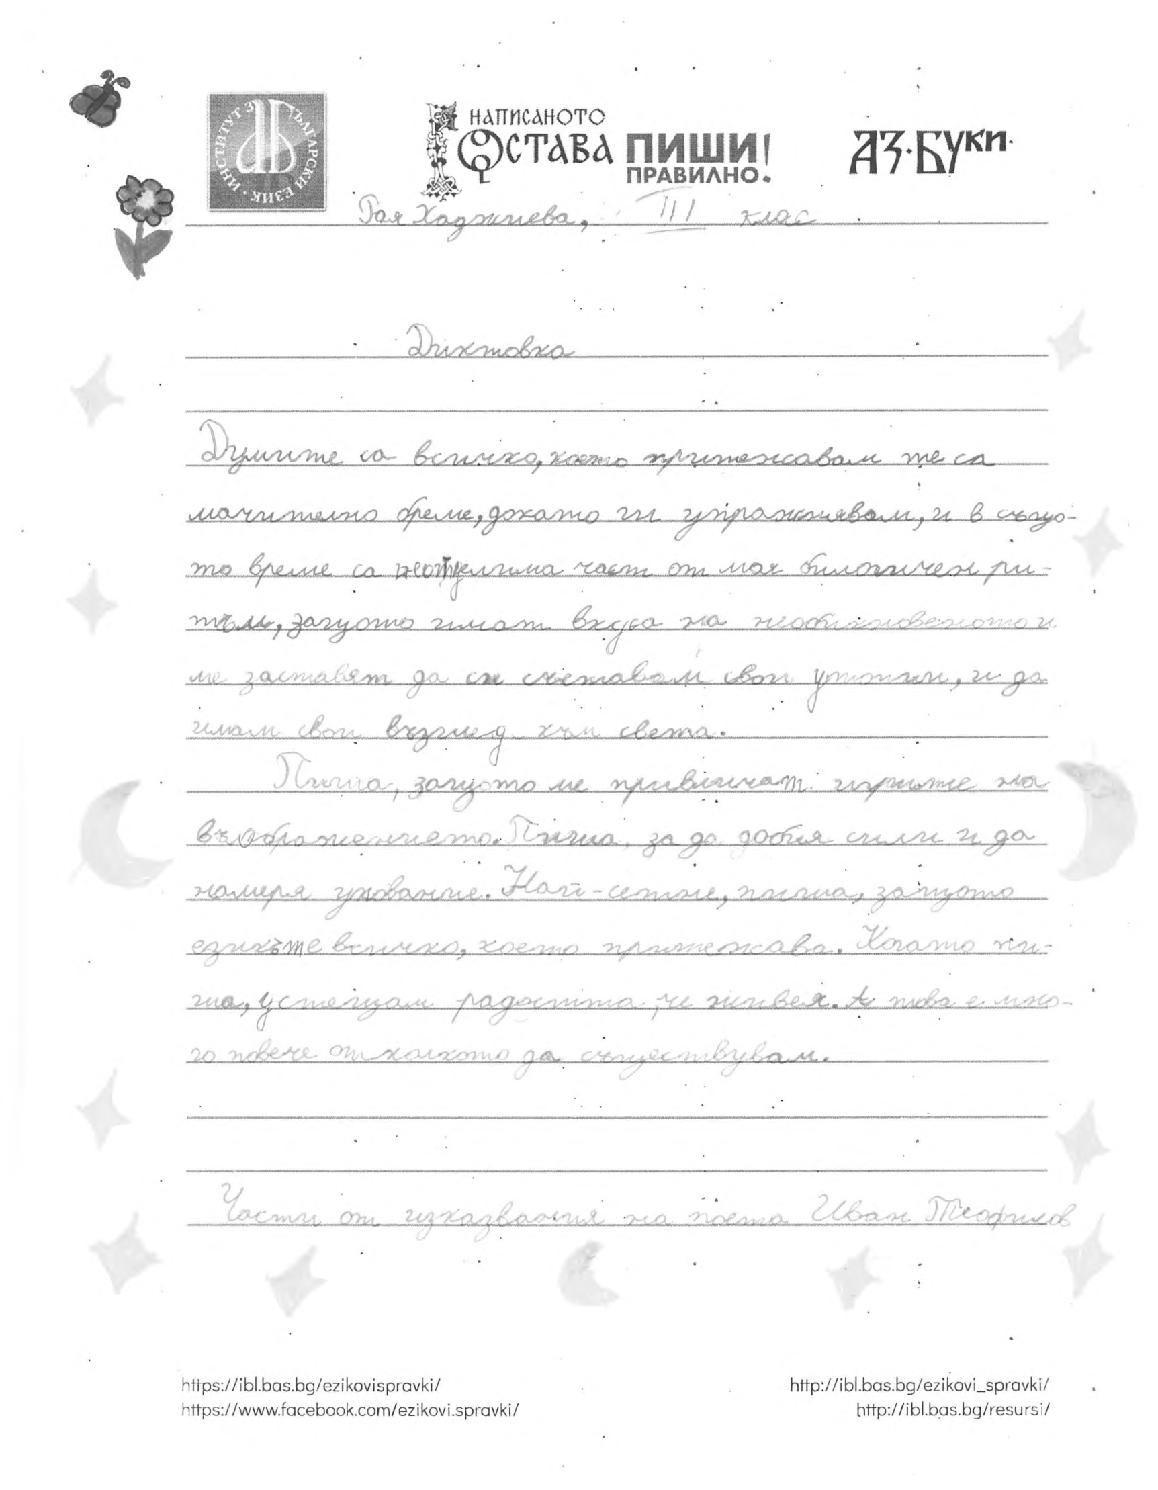 ИНСТИТУТ ЗА БЪЛГАРСКИ ЕЗИК
НАПИСАНОТО
ОСТАВА ПИШИ!
ПРАВИЛНО.
АЗ·БУКИ
Рая Хаджиева, III клас
Диктовка
Думите са всичко, което притежавам те са
мачително бреме, докато ги упражнявам, и в също-
то време са неотделима част от моя билогичен ри-
тъм, защото имат вкуса на необикновеното и
ме заставят да си съставам свои утопии, и да
имам свои възглед към света.
Пиша, защото ме привличат игрите на
въображението. Пиша, за да добия сили и да
намеря упование. Най-сетне, пиша, защото
езикъте всичко, което притежава. Когато пи-
ша, устещам радостта, че живея. А това е мно-
го повече отколкото да съществувам.
Части от изказвания на поета Иван Теофилов
https://ibl.bas.bg/ezikovispravki/
https://www.facebook.com/ezikovi.spravki/
http://ibl.bas.bg/ezikovi_spravki/
http://ibl.bas.bg/resursi/